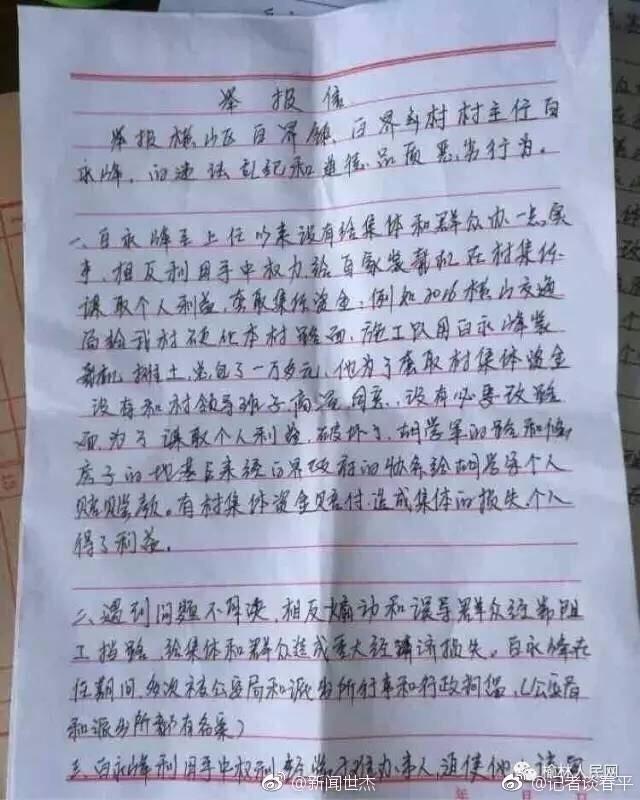 举报信
举报横山区白界镇、白界乡村村主任白
永峰,的违法乱纪和道德、品质恶劣行为。
一、白永峰至上任以来没有给集体和群众办一点实
事,相反利用手中权力,给自家装载机在村集体
谋取个人利益,套取集体资金,例如2016横山交通
局给我村硬化本村路面,施工队用白永峰装
载机推土,总包了一万多元,他为了套取村集体资金
没有和村领导班子商量同意,没有必要改路
面,为了谋取个人利益,破坏了,胡学军的路和修
房子的地基后来经白界政府的协条给胡学军个人
赔偿款。有村集体资金赔付,造成集体的损失,个人
得了利益。
二、遇到问题不解决,相反煽动和误导群众经常阻
工挡路,给集体和群众造成重大经济损失。白永峰在
任期间,多次被公安局和派出所行事和行政拘留,(公安局
和派出所都有名案)
三、白永峰利用手中权利,
年 月 日
榆林人民网
@新闻世杰
@记者谈春平